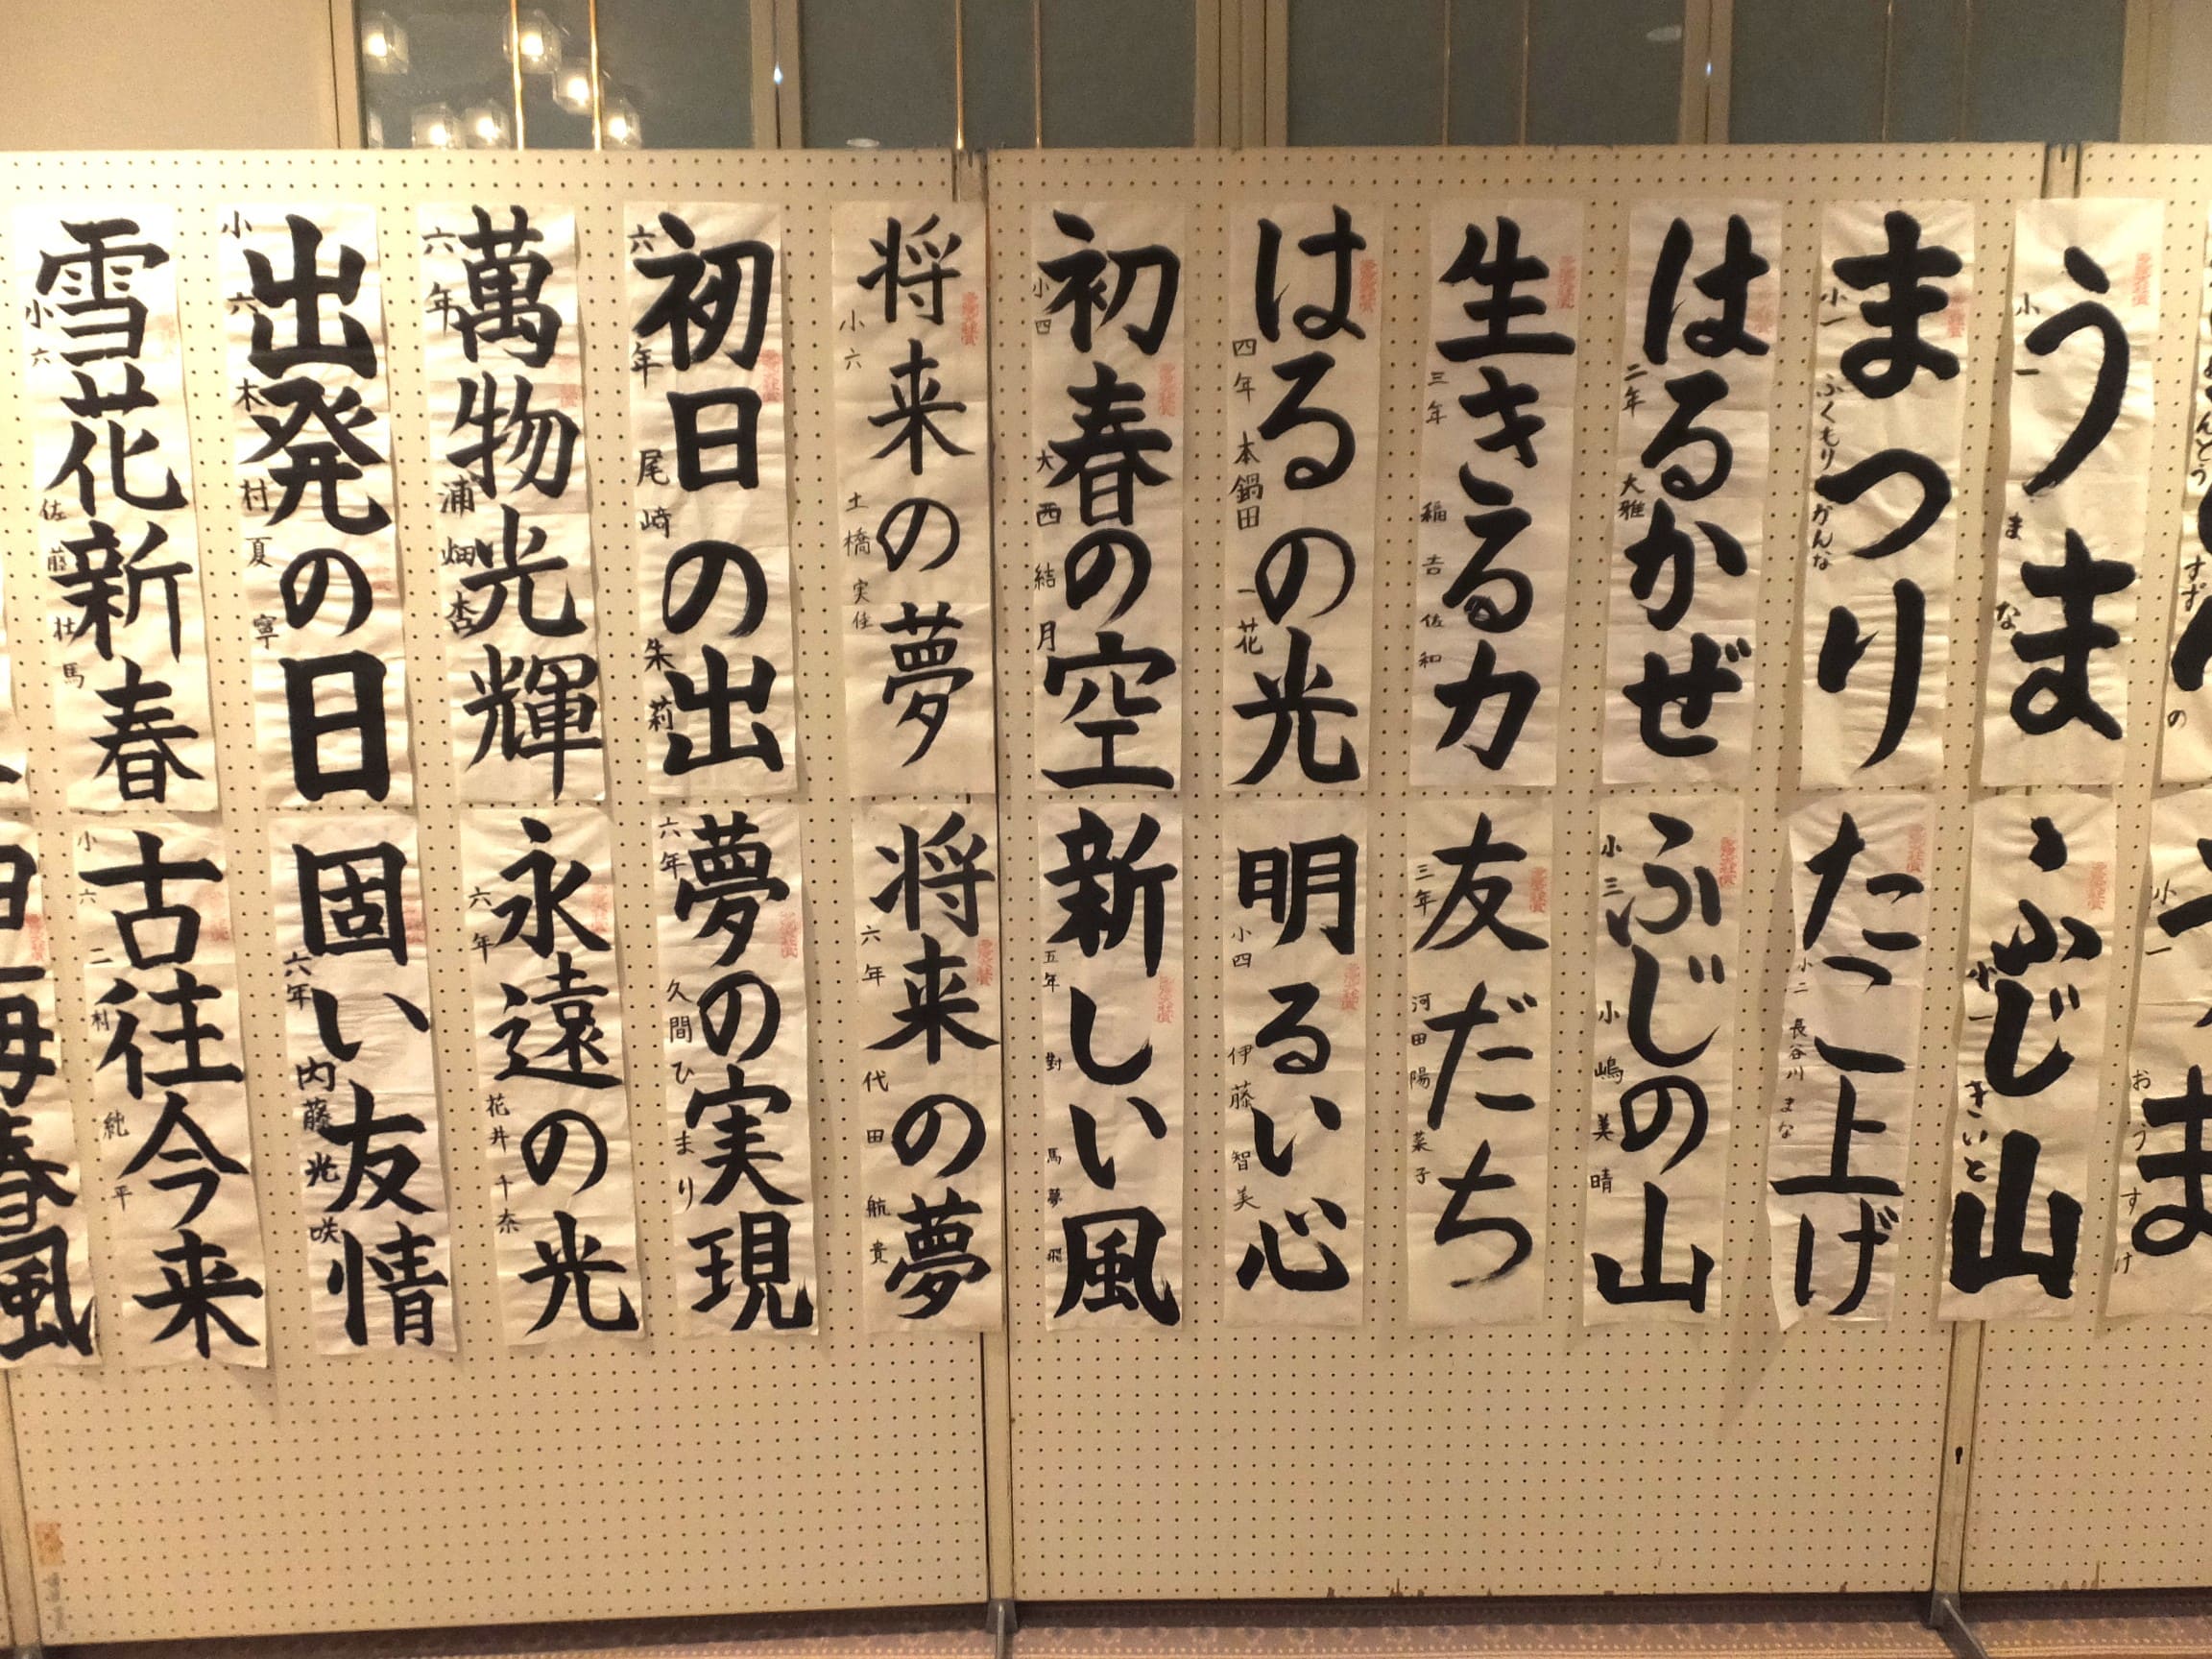 うま
小一
まな
まつり
小一
ふくもりかんな
はるかぜ
二年
大雅
生きる力
三年
稲吉佐和
はるの光
四年
本鍋田一花
初春の空
小四
大西結月
将来の夢
小六
土橋実佳
初日の出
六年
尾﨑朱莉
萬物光輝
六年
浦畑杏
出発の日
小六
木村夏寧
雪花新春
小六
佐藤壮馬
ふじ山
小一
きいと
たこ上げ
小二
長谷川まな
ふじの山
小三
小嶋美晴
友だち
三年
河田陽菜子
明るい心
小四
伊藤智美
新しい風
五年
對馬夢飛
将来の夢
六年
代田航貴
夢の実現
六年
久間ひまり
永遠の光
六年
花井千奈
固い友情
六年
内藤光咲
古往今来
小六
二村純平
春風